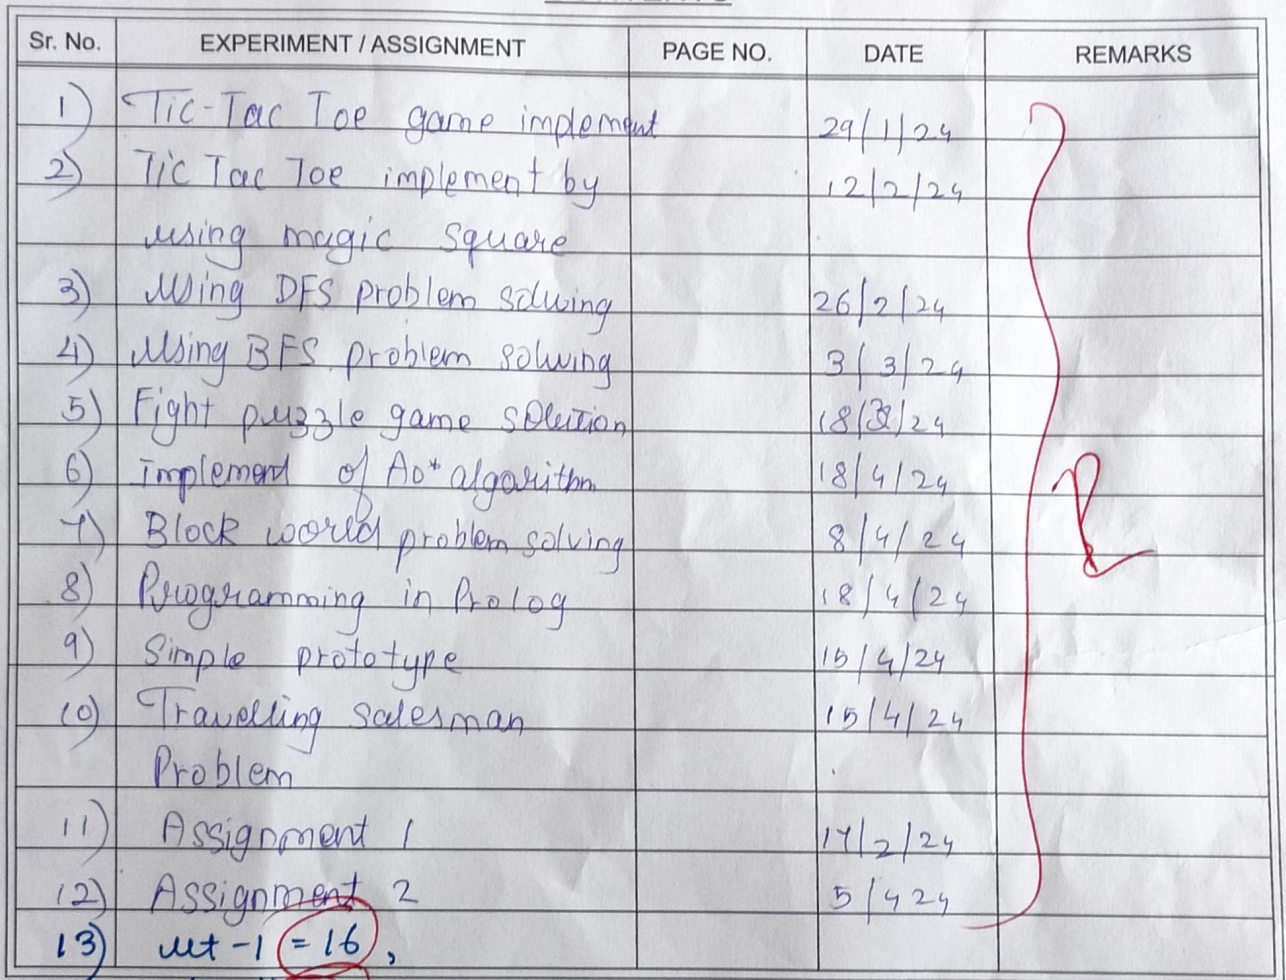 Sr. No. EXPERIMENT / ASSIGNMENT PAGE NO. DATE REMARKS
1) Tic-Tac Toe game implement 29/1/24
2) Tic Tac Toe implement by 12/2/24
using magic square
3) Using DFS problem solving 26/2/24
4) Using BFS problem solving 3/3/24
5) Eight puzzle game solution 18/3/24
6) implement of Ao* algorithm 18/4/24
7) Block world problem solving 8/4/24
8) Programming in Prolog 18/4/24
9) Simple prototype 15/4/24
10) Travelling salesman 15/4/24
Problem
11) Assignment 1 17/2/24
12) Assignment 2 5/4 24
13) ut -1 = 16,